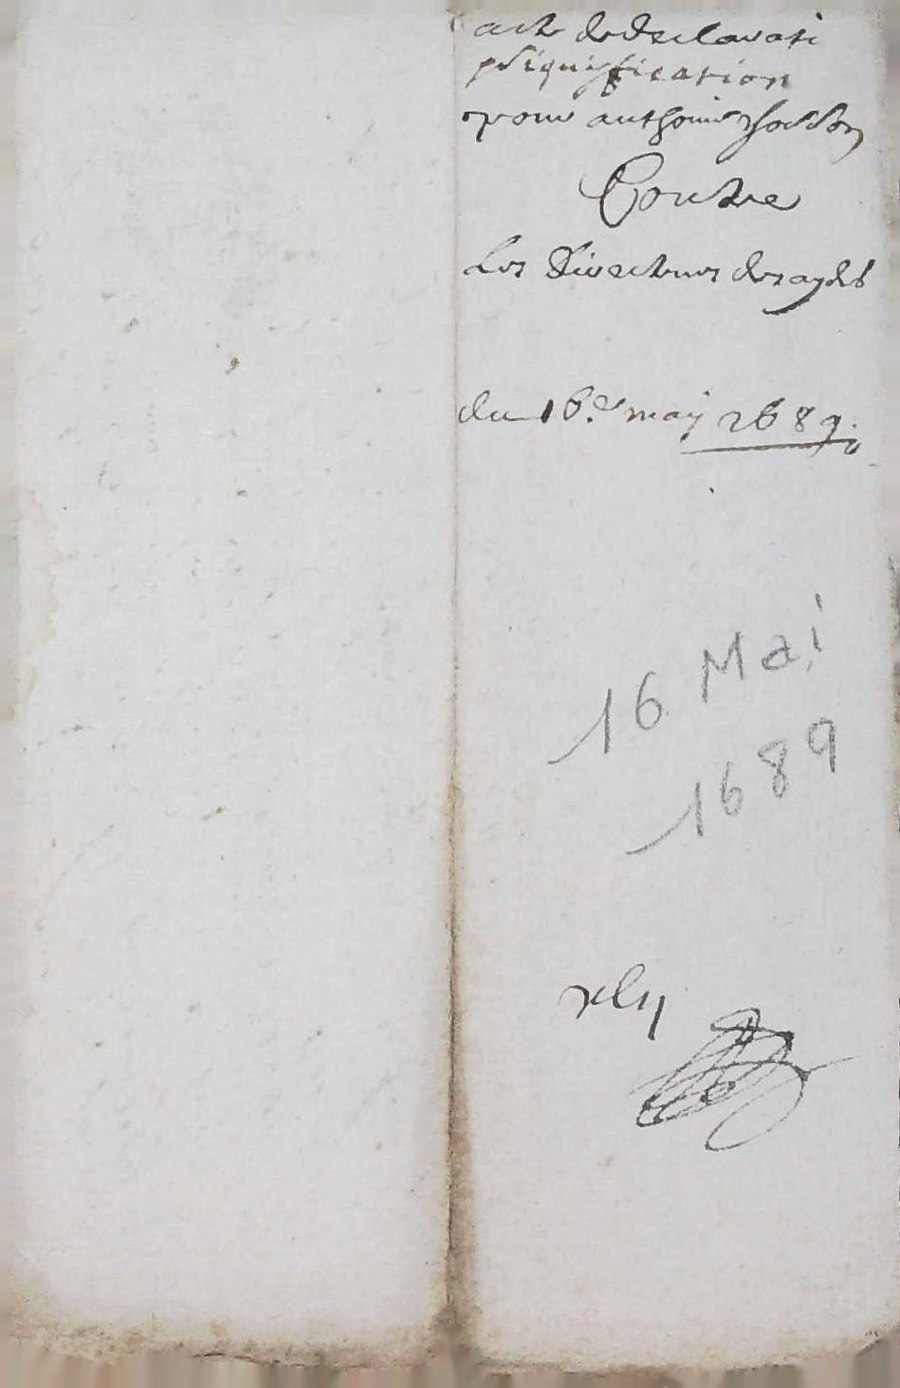 acte de desclarati
signiffication
pour anthoine
Contre
Les Directeurs des aydes
du 16.e may 1689.
16 Mai
1689